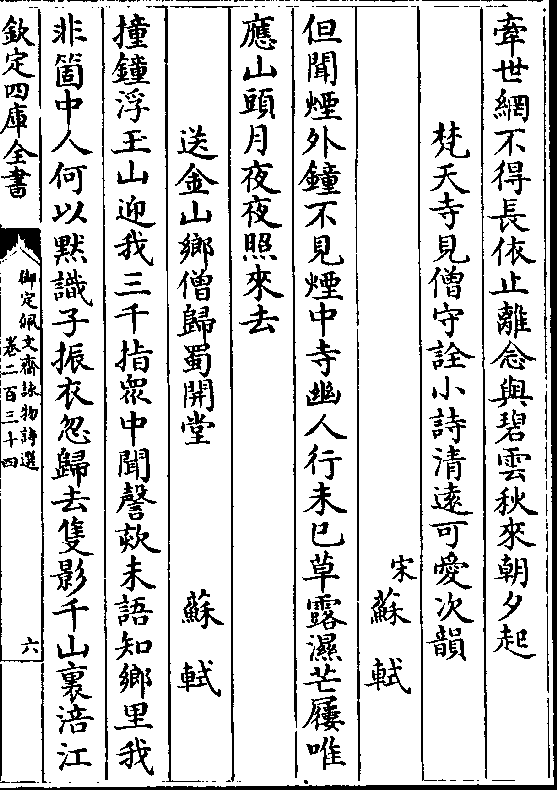 牽世網不得長依止離念與碧雲秋來朝夕起
梵天寺見僧守詮小詩清遠可愛次韻
宋蘇軾
但聞煙外鐘不見煙中寺幽人行未已草露濕芒屨唯
應山頭月夜夜照來去
送金山鄉僧歸蜀開堂 蘇軾
撞鐘浮玉山迎我三千指眾中聞謦欬未語知鄉里我
非箇中人何以默識子振衣忽歸去隻影千山裏涪江
欽定四庫全書
御定佩文齋詠物詩選
卷二百三十四
六